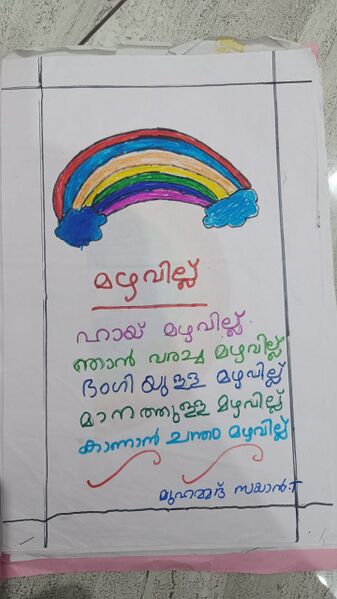 മഴവില്ല്
ഹായ് മഴവില്ല്.
ഞാൻ വരച്ച മഴവില്ല്
ഭംഗിയുള്ള മഴവില്ല്
മാനത്തുള്ള മഴവില്ല്
കാന്നാൻ ചന്തം മഴവില്ല്
മുഹമ്മദ് സയാൻ.T